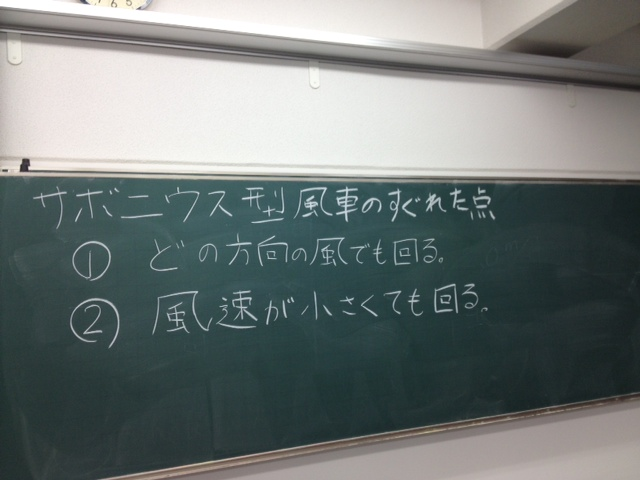 サボニウス型風車のすぐれた点
① どの方向の風でも回る。
② 風速が小さくても回る。